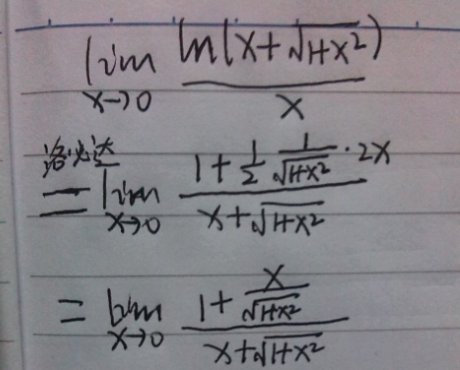 lim_{x→0} \frac{ln(x+\sqrt{1+x^2})}{x}
洛必达 = lim_{x→0} \frac{1+\frac{1}{2}\frac{1}{\sqrt{1+x^2}}·2x}{x+\sqrt{1+x^2}}
= lim_{x→0} \frac{1+\frac{x}{\sqrt{1+x^2}}}{x+\sqrt{1+x^2}}